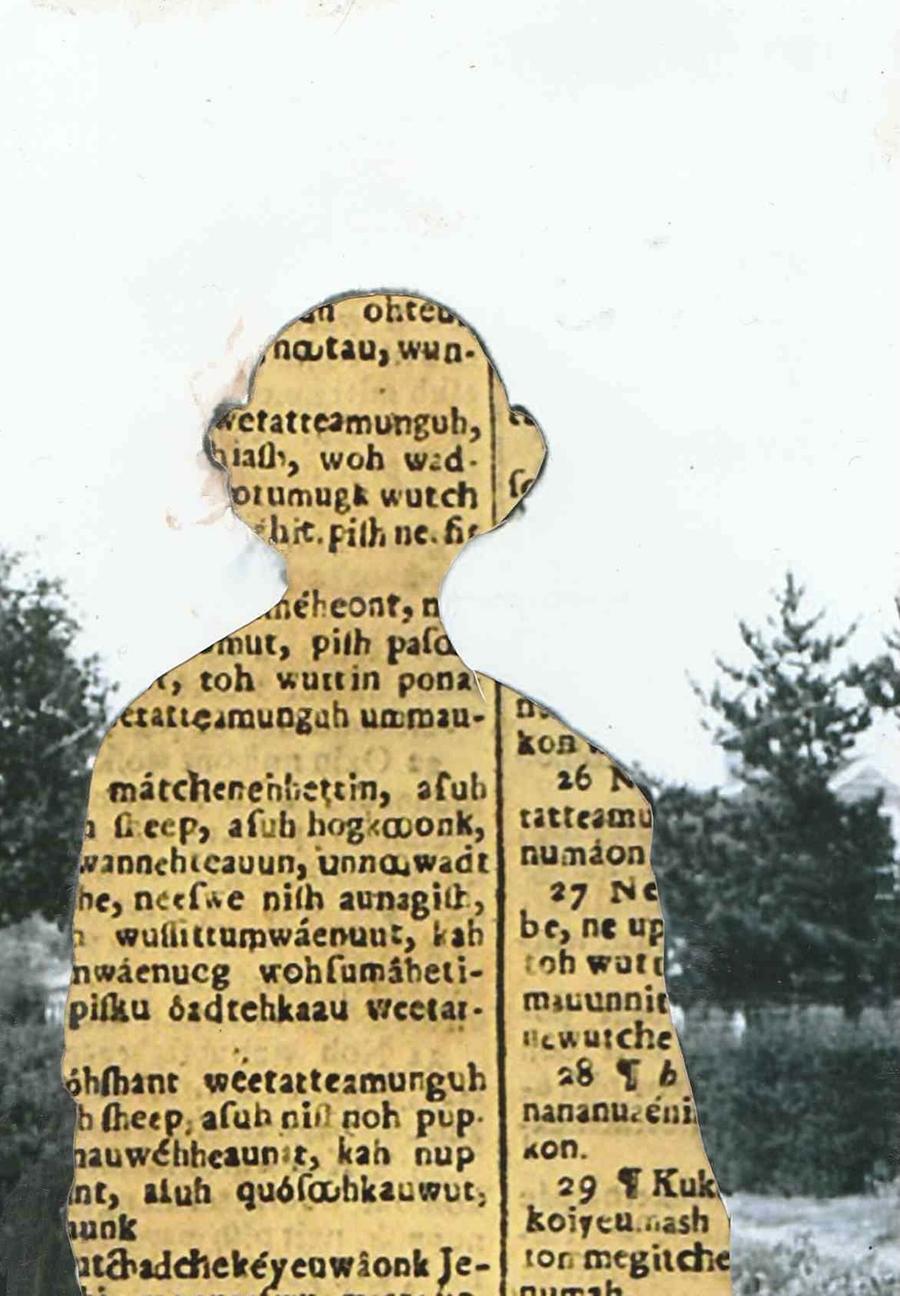 ohteu
nꝏtau, wun-
wetatteamunguh,
woh wad-
otumugk wutch
hit. piſh ne. ſis
méheont, n
omut, piſh paſꝏ
toh wuttin pona
etatteamunguh ummau-
mátchenehhettin, aſuh
ſheep, aſuh hogkꝏonk,
wannehteauun, unnꝏwadt
he, neeſwe niſh aunagiſh,
wuſſittumwáenuut, kah
nwáenucg wohſumáheti-
piſku óadtehkaau weetat-
óhſhant weetatteamunguh
h ſheep, aſuh niſh noh pup-
nauwéhheaunit, kah nup
nt, aſuh quóſꝏhkauwut,
aunk
utchadchekéyeuwâonk Je-
kon
26 N
tatteamu
numáon
27 Ne
be, ne up
toh wutt
mauunnit
newutche
28 ¶
nananuaéni
kon.
29 ¶ Kuk
koiyeumash
ton megitche
numah